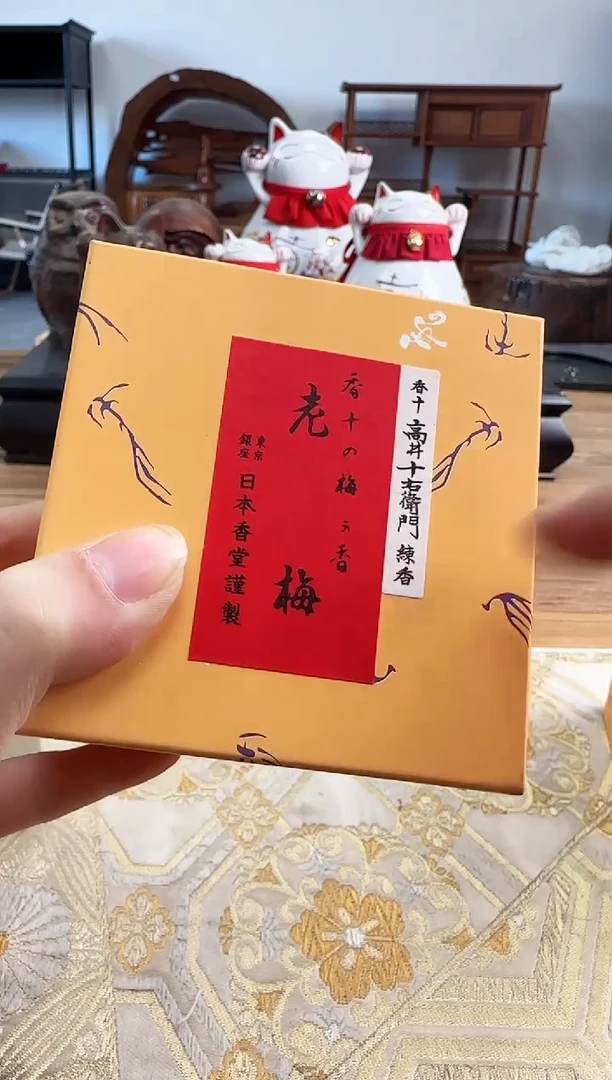 香十 高井十右衛門 練香
香十の梅ヶ香
老梅
東京
銀座
日本香堂謹製